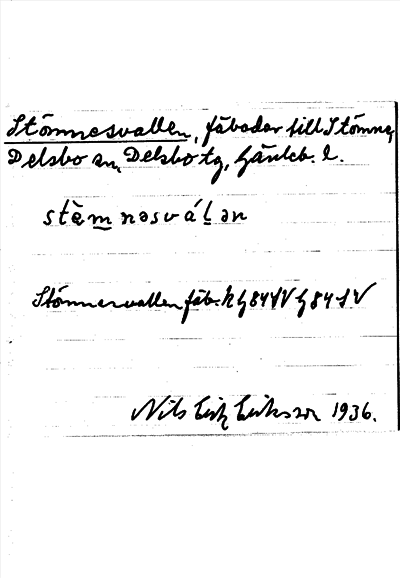 Stömnesvallen, fäbodar till Stömne,
Delsbo sn, Delsbo tg, Gävleb. l.
stèm̲nəsvál̲ən
Stömnesvallen fäb.
Nils Erik Eriksson 1936.